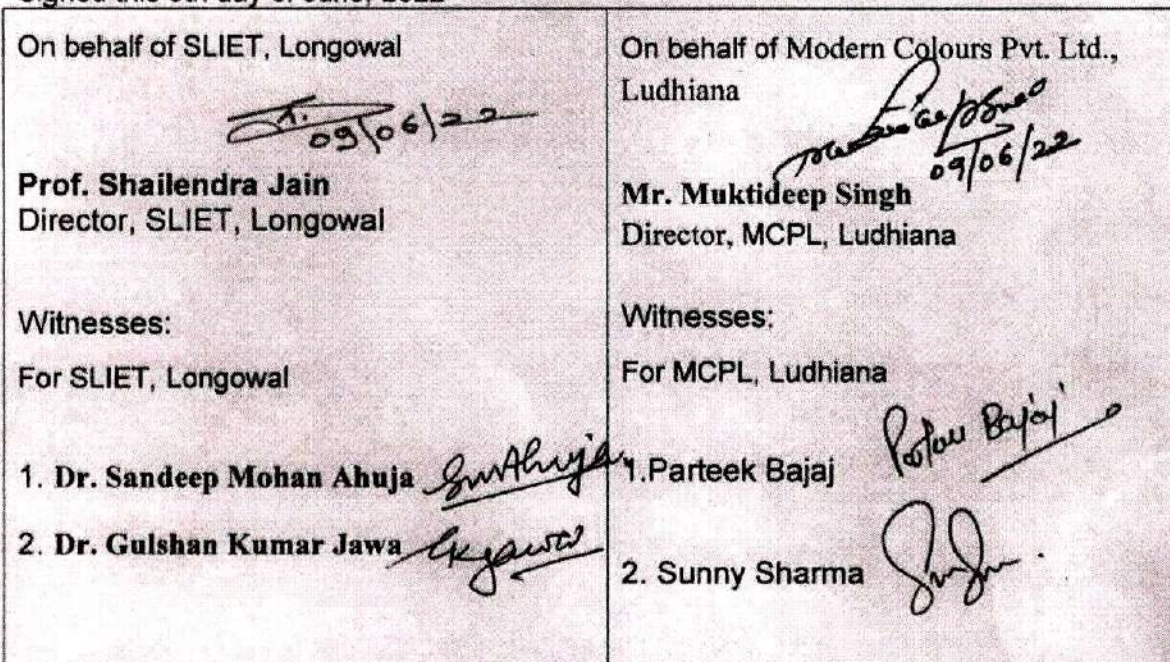 On behalf of SLIET, Longowal
09/06/22
Prof. Shailendra Jain
Director, SLIET, Longowal
Witnesses:
For SLIET, Longowal
1. Dr. Sandeep Mohan Ahuja SmAhuja
2. Dr. Gulshan Kumar Jawa Gkjawa
On behalf of Modern Colours Pvt. Ltd.,
Ludhiana
09/06/22
Mr. Muktideep Singh
Director, MCPL, Ludhiana
Witnesses:
For MCPL, Ludhiana
1.Parteek Bajaj Bajaj
2. Sunny Sharma